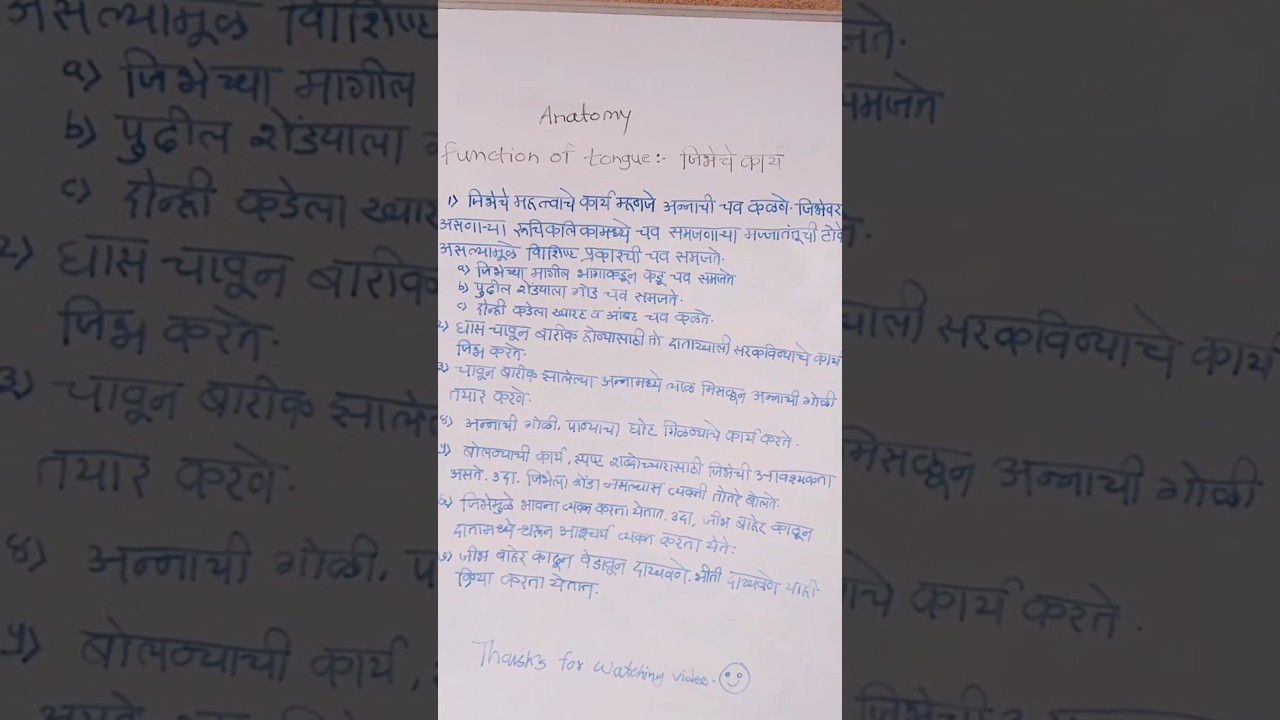 Anatomy
function of tongue:- जिभेचे कार्य
१) जिभेचे महत्त्वाचे कार्य म्हणजे अन्नाची चव कळणे. जिभेवर
असणाऱ्या रूचिकलिकामध्ये चव समजणाऱ्या मज्जातंतूची टोके
असल्यामूळे विशिष्ट प्रकारची चव समजते.
a) जिभेच्या मागील भागाकडून कडू चव समजते
b) पुढील शेंडयाला गोड चव समजते.
c) दोन्ही कडेला खारट व आंबट चव कळते.
२) घास चावून बारीक होण्यासाठी तो दाताखाली सरकविण्याचे कार्य
जिभ करते.
३) चावून बारीक झालेल्या अन्नामध्ये लाळ मिसळून अन्नाची गोळी
तयार करणे.
४) अन्नाची गोळी, पाण्याचा घोट गिळण्याचे कार्य करते.
५) बोलण्याची कार्य, स्पष्ट शब्दोच्चारासाठी जिभेची आवश्यकता
असते. उदा. जिभेला शेंडा नसल्यास व्यक्ती तोतरे बोलते.
६) जिभेमुळे भावना व्यक्त करता येतात. उदा, जीभ बाहेर काढून
दातामध्ये धरून आश्चर्य व्यक्त करता येते.
७) जीभ बाहेर काढून वेडावून दाखवणे. भीती दाखवणे याही
क्रिया करता येतात.
Thanks for watching video.